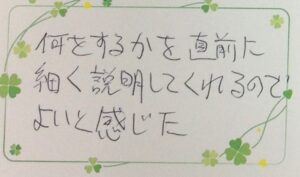 何をするかを直前に
細く説明してくれるので
よいと感じた